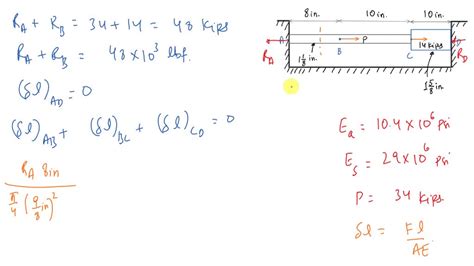 R_A + R_B = 34 + 14 = 48 kips
R_A + R_B = 48 × 10^3 lbf.
(δl)_AD = 0
(δl)_AB + (δl)_BC + (δl)_CD = 0
R_A 8in
π/4 (9/8 in)^2
8 in. 10 in. 10 in.
R_A A B P C 14 kips D R_D
1 1/8 in. 1 5/8 in.
E_a = 10.4 × 10^6 psi
E_s = 29 × 10^6 psi
P = 34 kips
δl = Fl/AE